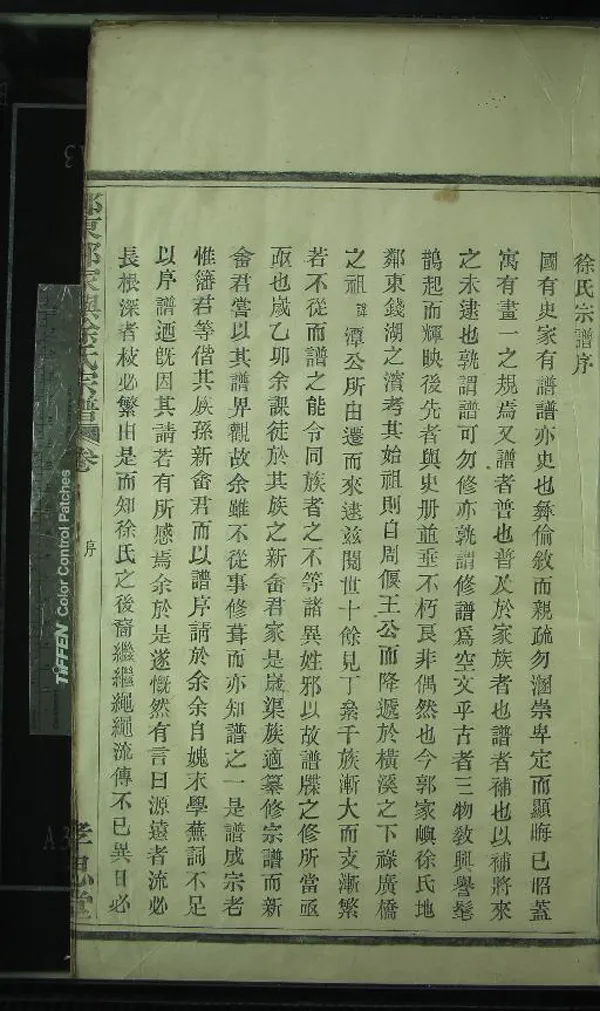 徐氏宗譜序
國有史家有譜譜亦史也彝倫敘而親疏勿溷崇卑定而顯晦已昭蓋
寓有畫一之規焉又譜者普也普及於家族者也譜者補也以補將來
之未逮也孰謂譜可勿修亦孰謂修譜爲空文乎古者三物敎興譽髦
鵲起而輝映後先者與史册並垂不朽良非偶然也今郭家嶼徐氏地
鄰東錢湖之濱考其始祖則自周偃王公而降遞於橫溪之下祿廣橋
之祖諱潭公所由遷而來逮兹閱世十餘見丁衆千族漸大而支漸繁
若不從而譜之能令同族者之不等諸異姓邪以故譜牒之修所當亟
亟也歲乙卯余課徒於其族之新畬君家是歲渠族適纂修宗譜而新
畬君嘗以其譜畀觀故余雖不從事修葺而亦知譜之一是譜成宗老
惟籓君等偕其族孫新畬君而以譜序請於余余自媿末學蕪詞不足
以序譜迺旣因其請若有所感焉余於是遂慨然有言曰源遠者流必
長根深者枝必繁由是而知徐氏之後裔繼繼繩繩流傳不已異日必
東郭家嶼徐氏宗譜 卷 序 孝思堂
TIFFEN Color Control Patches